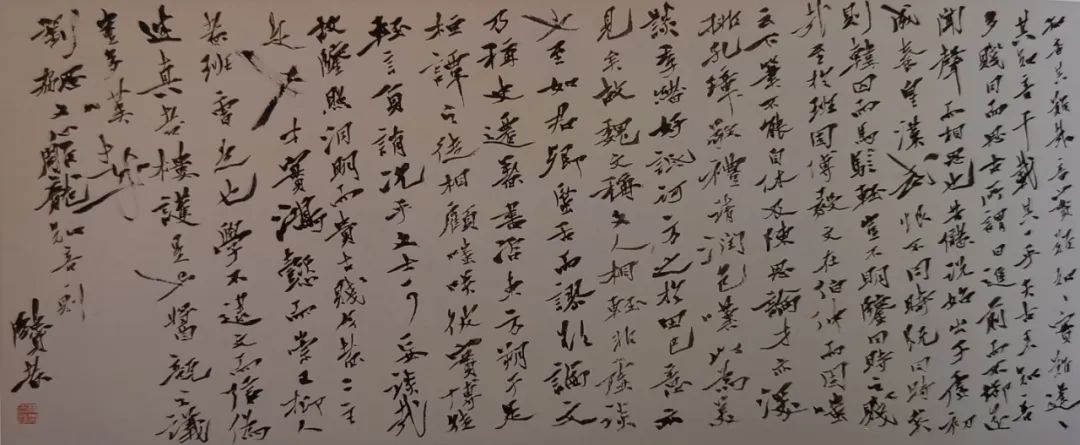 知音其難哉音實難知〻實難逢〻
其知音千載其一乎夫古來知音
多賤同而思古所謂日進前而不御遙
聞聲而相思也昔儲說始出子虛初
成秦皇漢武恨不同時既同時矣
則韓囚而馬輕豈不明鑒同時之賤
哉至於班固傅毅文在伯仲而固嗤
云下筆不能自休及陳思論才亦深
排孔璋敬禮請潤色嘆以為美
談季緒好詆訶方之於田巴意亦
見矣故魏文稱文人相輕非虛談
也至如君卿唇舌而謬欲論文
乃稱史遷著書諮東方朔于是
桓譚之徒相顧嗤笑彼實博徒
輕言負誚況乎文士可妄談哉
故鑒照洞明而貴古賤今者二主
是也才實鴻懿而崇己抑人
者班曹是也學不逮文而信偽
迷真者樓護是也醬瓿之議
豈多嘆哉
劉勰文心雕龍知音則